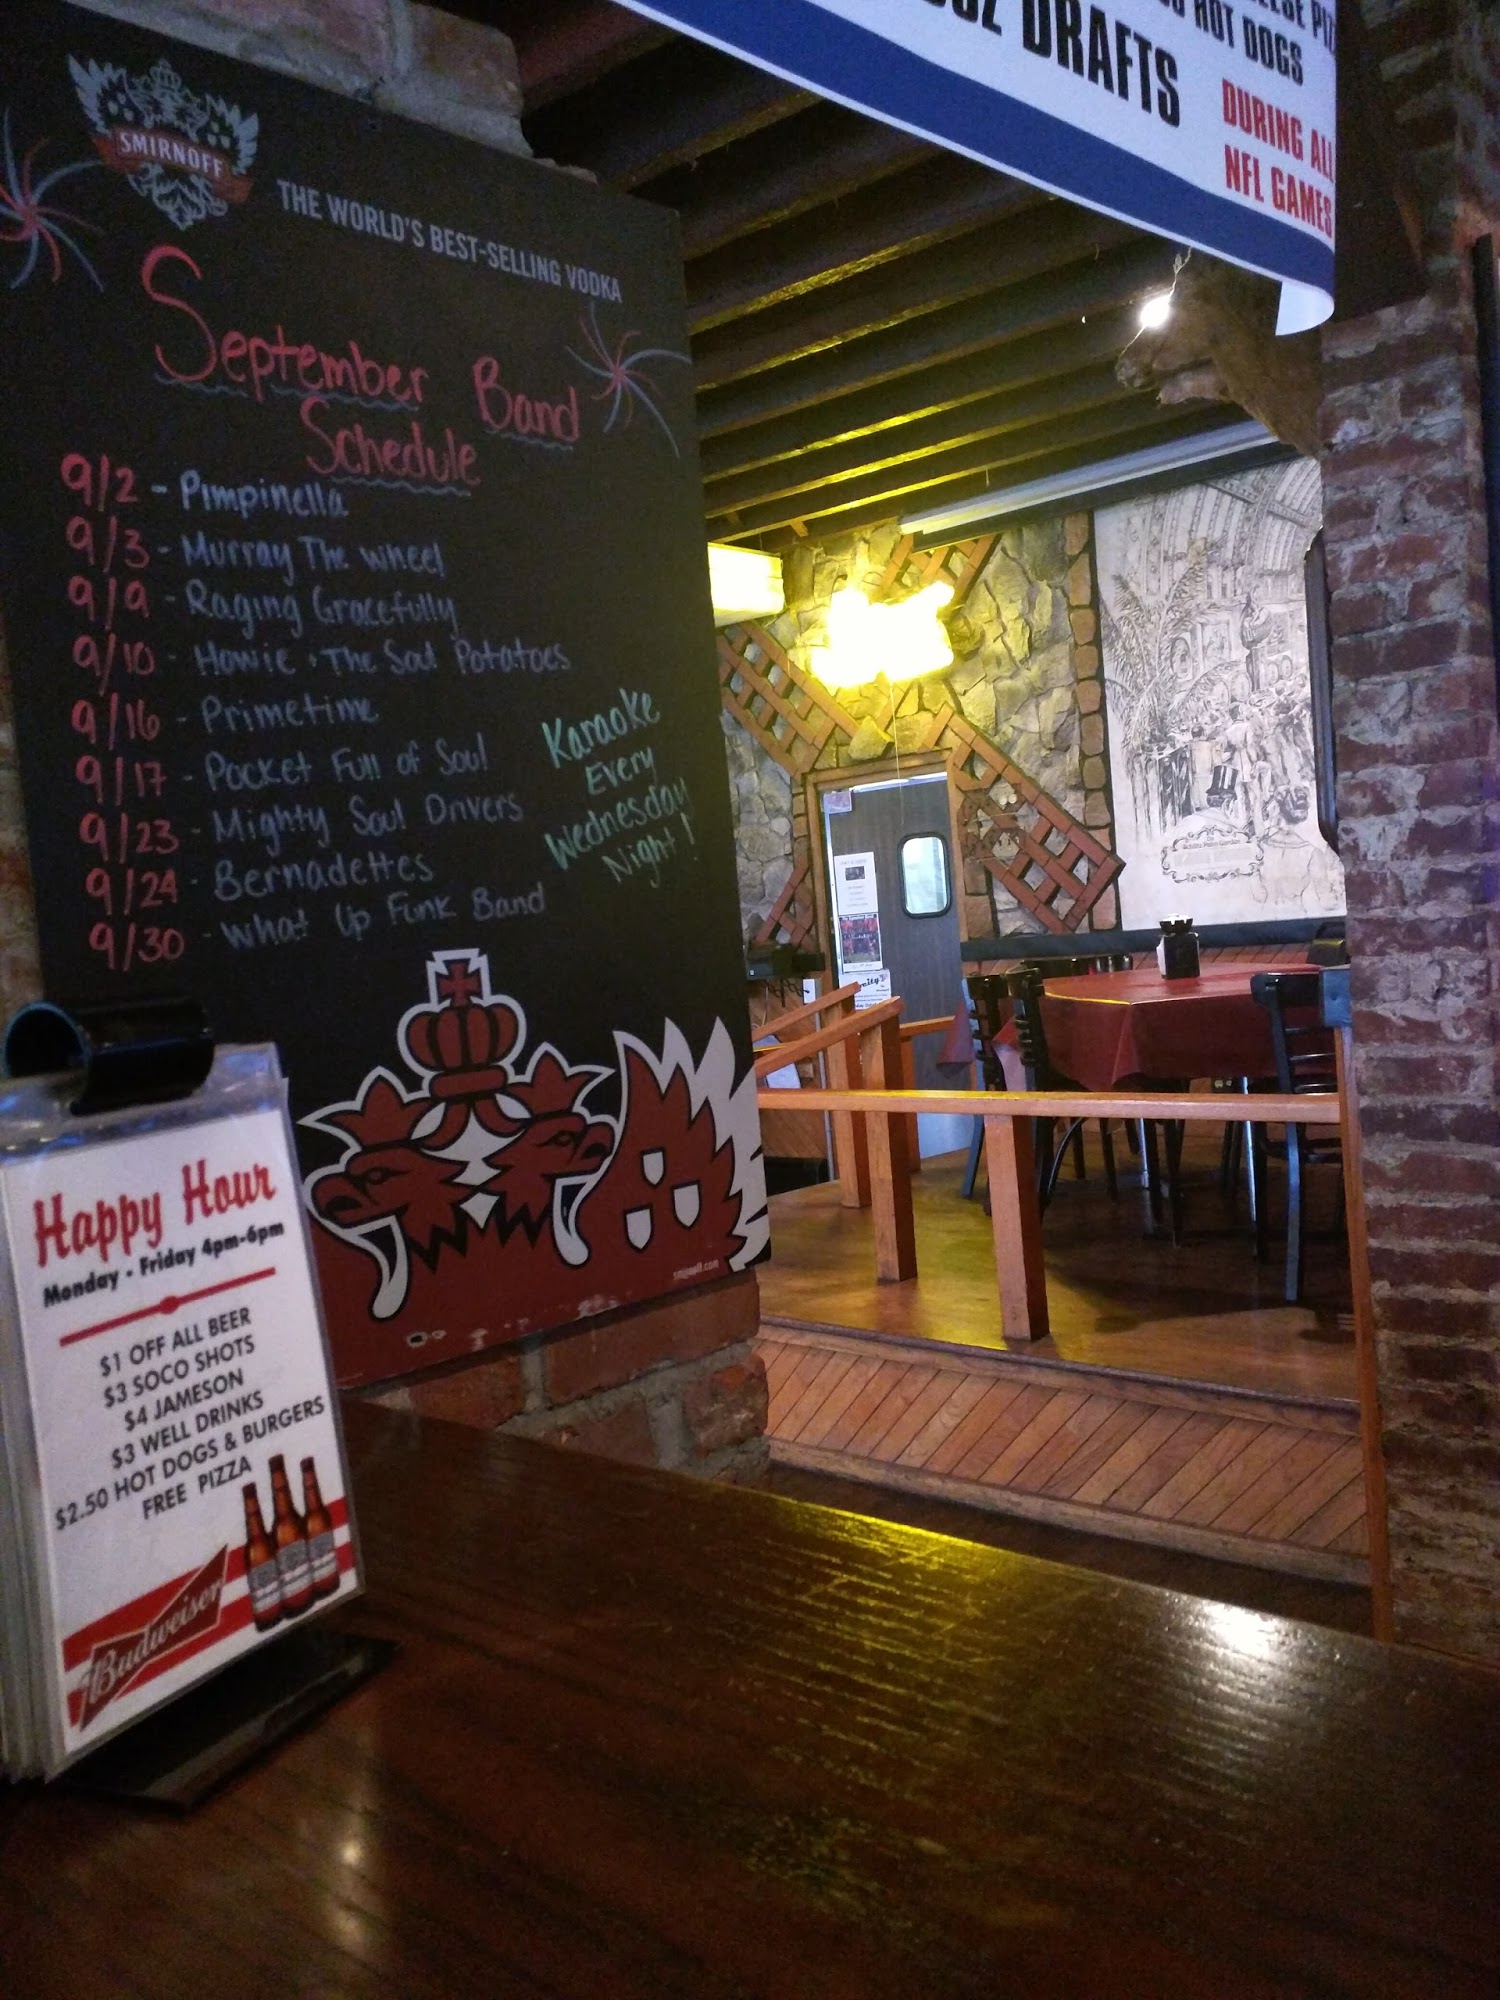 SMIRNOFF
THE WORLD'S BEST-SELLING VODKA
September Band
Schedule
9/2 - Pimpinella
9/3 - Murray The Wheel
9/9 - Raging Gracefully
9/10 - Howie & The Soul Potatoes
9/16 - Primetime
9/17 - Pocket Full of Soul
9/23 - Mighty Soul Drivers
9/24 - Bernadettes
9/30 - What Up Funk Band
Karaoke
Every
Wednesday
Night!
smirnoff.com
Happy Hour
Monday - Friday 4pm-6pm
$1 OFF ALL BEER
$3 SOCO SHOTS
$4 JAMESON
$3 WELL DRINKS
$2.50 HOT DOGS & BURGERS
FREE PIZZA
Budweiser
DRAFTS
HOT DOGS
DURING ALL
NFL GAMES